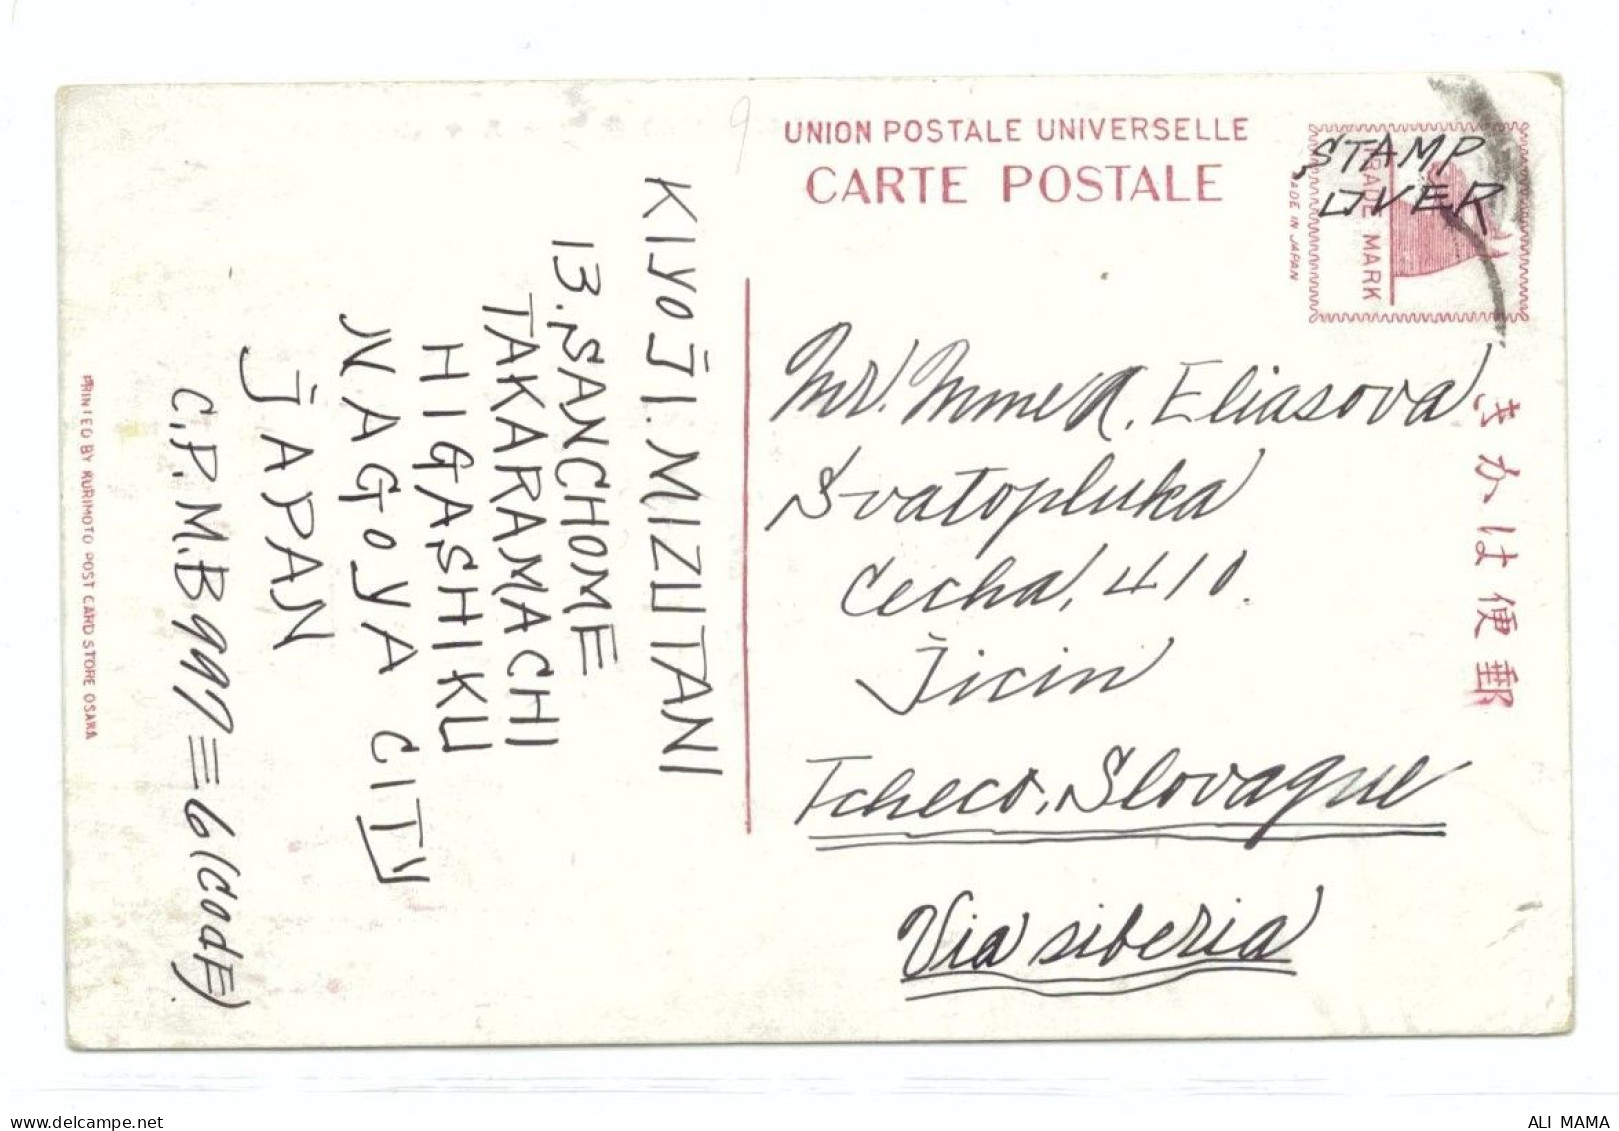 UNION POSTALE UNIVERSELLE
CARTE POSTALE
STAMP
OVER
TRADE MARK
MADE IN JAPAN
きかは便郵
Mr. Mme A. Eliasova
Svatopluka
Cecha, 410.
Jicin
Tcheco, Slovaque
Via siberia
KIyoJI. MIZUTANI
13. SANCHOME
TAKARAMACHI
HIGASHIKU
NAGoyA CITY
JAPAN
C.P.M.B 997≡6 (CodE)
PRINTED BY KURIMOTO POST CARD STORE OSAKA
9
ALI MAMA